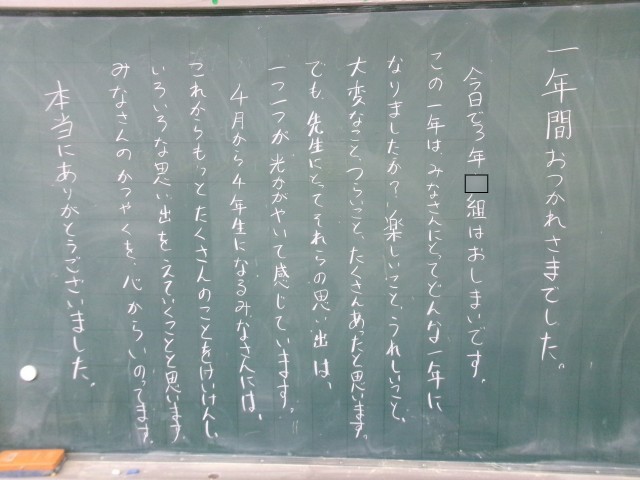 一年間おつかれさまでした。
今日で3年組はおしまいです。
この一年は、みなさんにとってどんな一年に
なりましたか?楽しいこと、うれしいこと、
大変なこと、つらいこと、たくさんあったと思います。
でも、先生にとってそれらの思い出は、
一つ一つが光かがやいて感じています。
4月から4年生になるみなさんには、
これからもっとたくさんのことをけいけんし、
いろいろな思い出をえていくことと思います
みなさんのかつやくを、心からいのってます。
本当にありがとうございました。